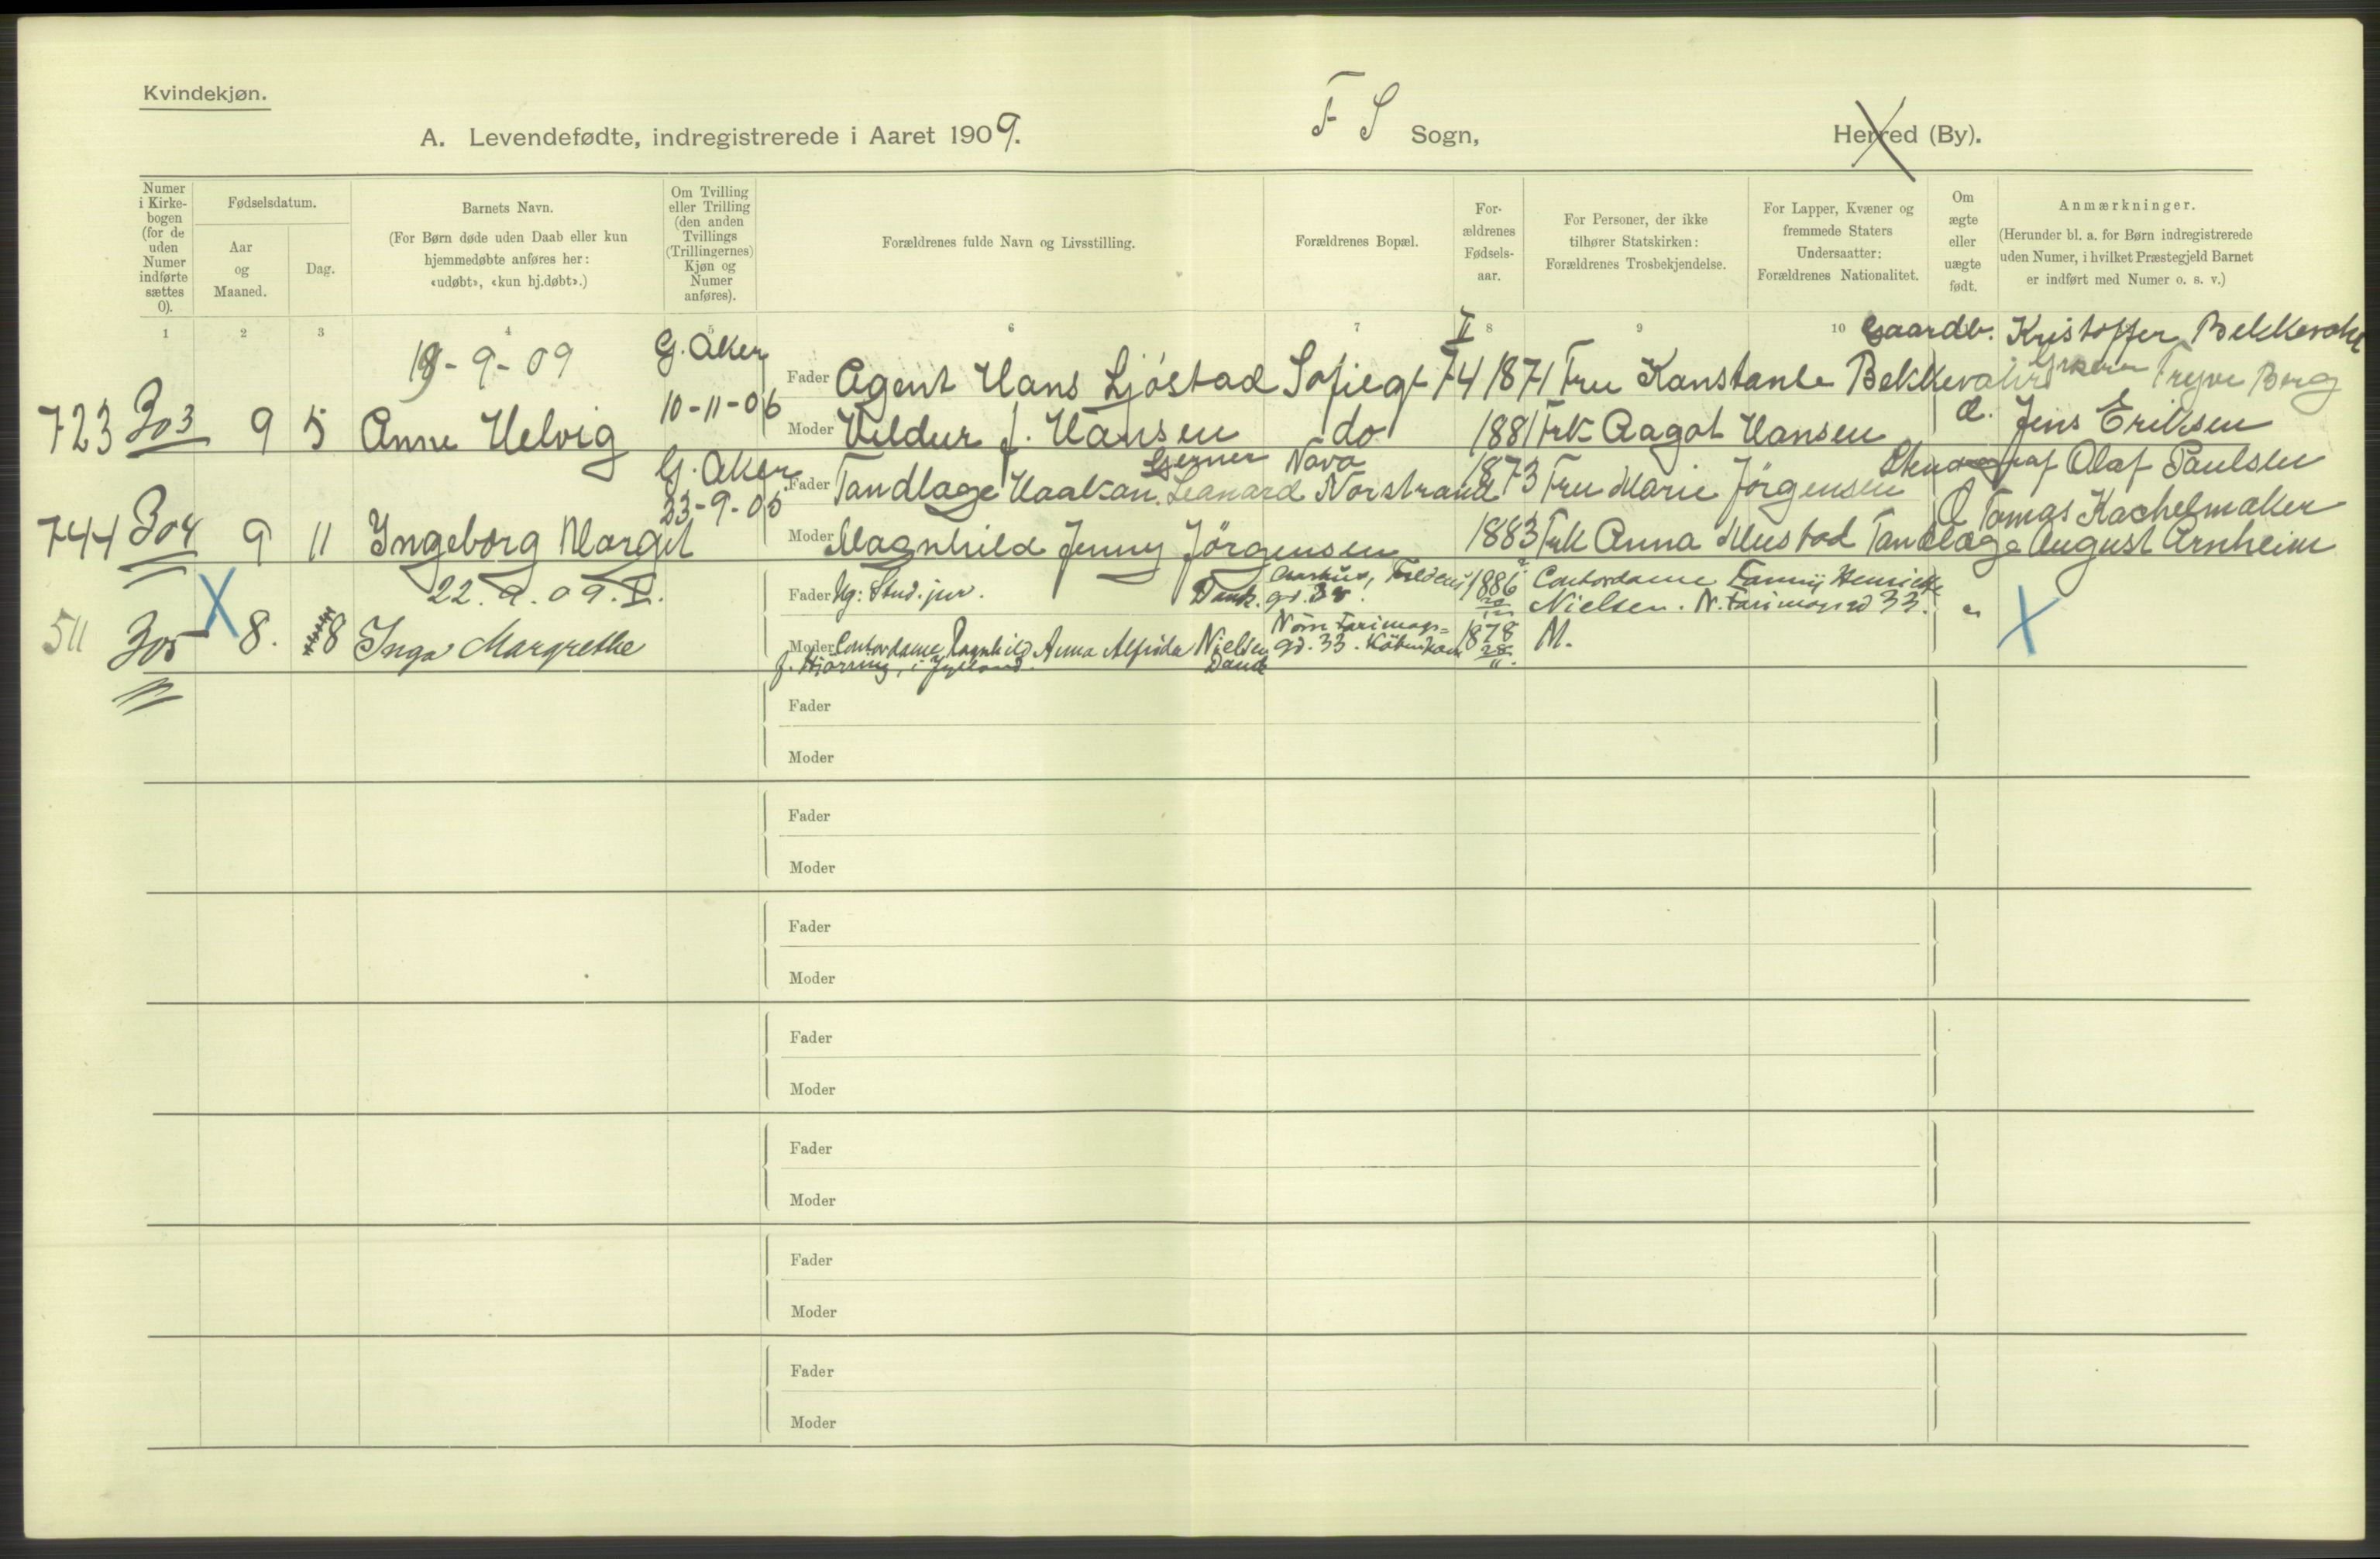 Kvindekjøn.
A. Levendefødte, indregistrerede i Aaret 1909.
F S Sogn,
Herred (By).
Numer i Kirkebogen (for de uden Numer indførte sættes 0).
Fødselsdatum.
Aar og Maaned.
Dag.
Barnets Navn.
(For Børn døde uden Daab eller kun hjemmedøbte anføres her: «udøbt», «kun hj.døbt».)
Om Tvilling eller Trilling (den anden Tvillings (Trillingernes) Kjøn og Numer anføres).
Forældrenes fulde Navn og Livsstilling.
Forældrenes Bopæl.
Forældrenes Fødselsaar.
For Personer, der ikke tilhører Statskirken: Forældrenes Trosbekjendelse.
For Lapper, Kvæner og fremmede Staters Undersaatter: Forældrenes Nationalitet.
Om ægte eller uægte født.
Anmærkninger.
(Herunder bl. a. for Børn indregistrerede uden Numer, i hvilket Præstegjeld Barnet er indført med Numer o. s. v.)
1 2 3 4 5 6 7 8 9 10
II
Gaardb. Kristoffer Bekkevold
18-9-09 G. Aker
Fader Agent Hans Ljöstad Sofiegt 74 1871 Fru Konstanse Tryve Berg
723 303 9 5 Anne Helvig 10-11-06
Moder f. Hansen do 1881 Frk Aagot Hansen Æ. Jens Eriksen
G. Aker Gerner
Fader Tandlæge Haakon Leonard Norstrand 1873 Fru Marie Jörgensen Olaf Paulsen
23-9-05
744 304 9 11 Ingeborg Margit
Tomas Kachelmaker
Moder Magnhild Jenny Jörgensen 1883 Frk Anna Mustad Tandlæge August Arnheim
22.9.09. I.
Fader Ug: Stud. jur. Dansk. Aarhus, 1886 Contordame Fanny Henriette
Nielsen. N. Farimagsgd 33. "
511 305 8. 8 Inga Margrethe
Moder Contordame Ragnhild Anna Alfrida Nielsen Nörre Farimags=
gd. 33. Köbenhavn 1878 M.
f. Hjörring, i Jylland. Dansk
Fader
Moder
Fader
Moder
Fader
Moder
Fader
Moder
Fader
Moder
Fader
Moder
Fader
Moder